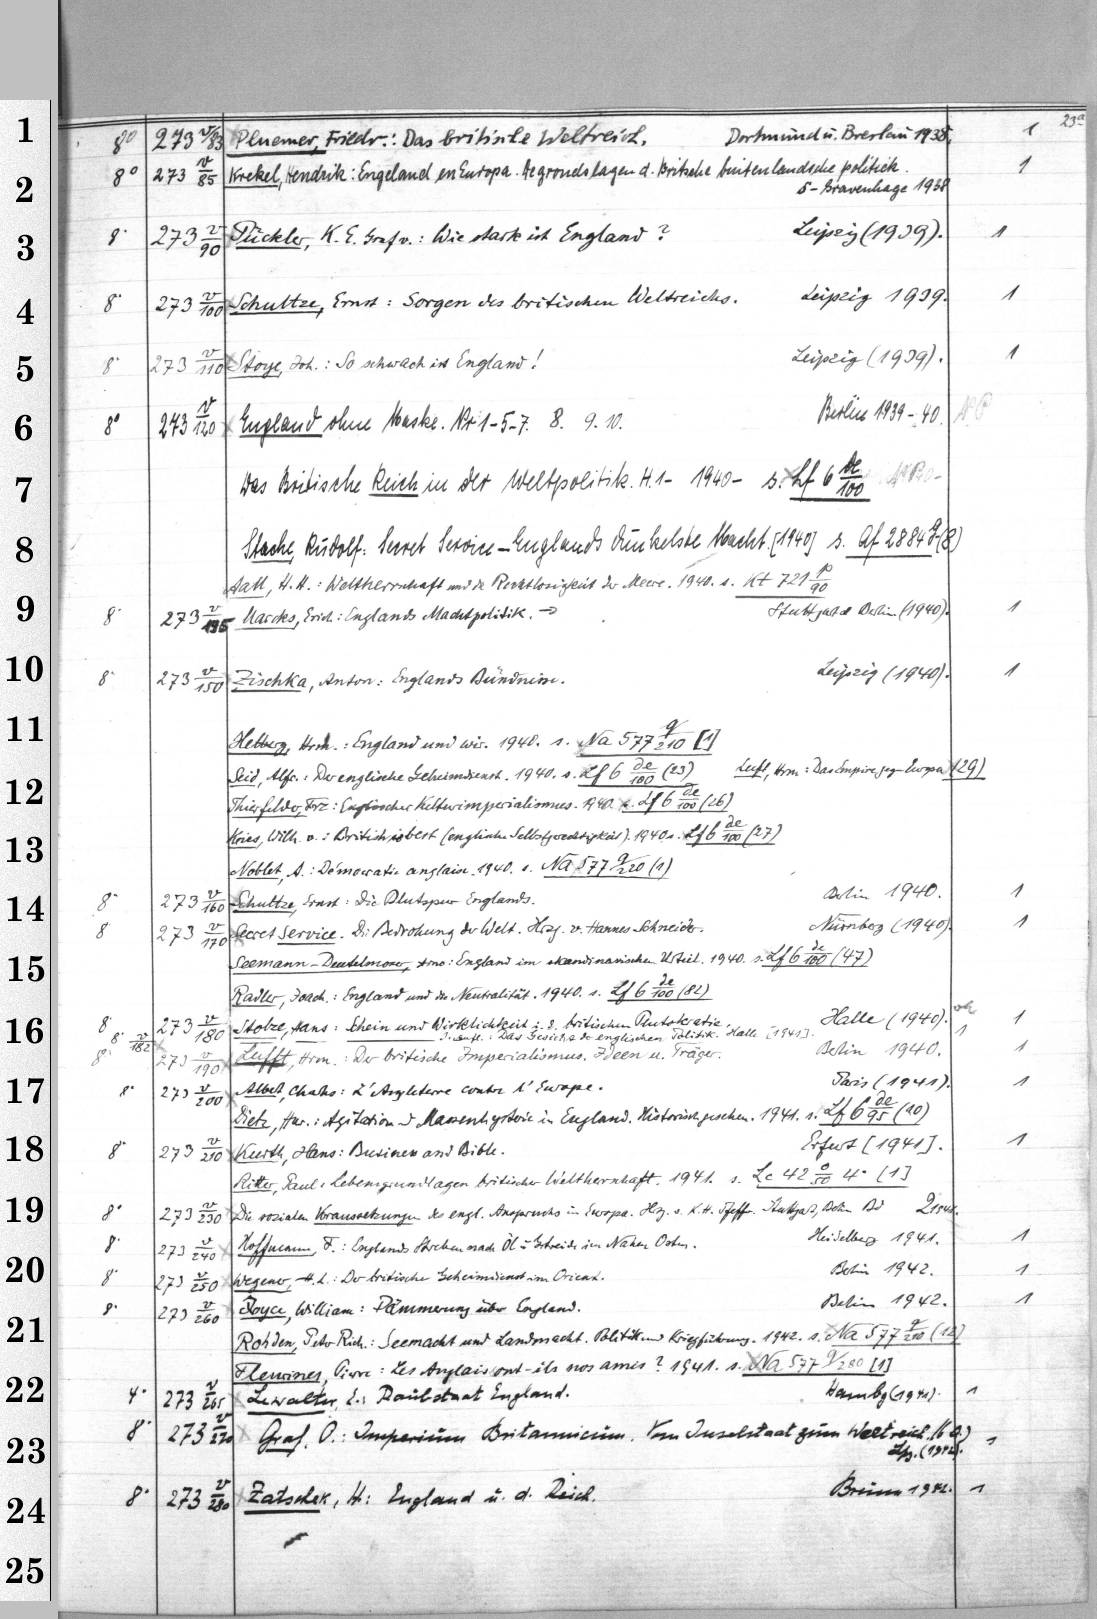 23a
1 8° 273 v/83 Pluemer, Friedr.: Das britische Weltreich. Dortmund u. Breslau 1938. 1
2 8° 273 v/85 Krekel, Hendrik: Engeland en Europa. De grondslagen d. Britsche buitenlandsche politiek. 1
s-Gravenhage 1938
3 8° 273 v/90 Pückler, K. E. Graf v.: Wie stark ist England? Leipzig (1939). 1
4 8° 273 v/100 Schultze, Ernst: Sorgen des britischen Weltreichs. Leipzig 1939. 1
5 8° 273 v/110 Stoye, Joh.: So schwach ist England! Leipzig (1939). 1
6 8° 273 v/120 England ohne Maske. Nr 1-5-7. 8. 9. 10. Berlin 1939-40.
7 Das Britische Reich in der Weltpolitik. H.1- 1940- s. Lf 6 de/100
8 Stache, Rudolf: Secret Service – Englands dunkelste Macht. [1940] s. Af 2884 g (8)
Aall, H. H.: Weltherrschaft und die Rechtlosigkeit der Meere. 1940. s. Kt 721 p/90
9 8° 273 v/135 Marcks, Erich: Englands Machtpolitik. Stuttgart Berlin (1940). 1
10 8° 273 v/150 Zischka, Anton: Englands Bündnisse. Leipzig (1940). 1
11 Helberg, Hrm.: England und wir. 1940. s. Na 577 q/210 [1]
Seid, Alfr.: Der englische Geheimdienst. 1940. s. Lf 6 de/100 (23) Lufft, Hrm: Das Empire gegen Europa (29)
12 Thierfelder, Frz: Englischer Kulturimperialismus. 1940. s. Lf 6 de/100 (26)
13 Kries, Wilh. v.: British is best (englische Selbstgerechtigkeit). 1940 s. Lf 6 de/100 (27)
Noblet, A.: Démocratie anglaise. 1940. s. Na 577 q/220 (1)
14 8° 273 v/160 Schultze, Ernst: Die Blutspur Englands. Berlin 1940. 1
8° 273 v/170 Secret Service. Die Bedrohung der Welt. Hrsg. v. Hannes Schneider. Nürnberg (1940). 1
15 Seemann-Deutelmoser, Arno: England im skandinavischen Urteil. 1940. s. Lf 6 de/100 (47)
Radler, Joach.: England und die Neutralität. 1940. s. Lf 6 de/100 (82)
16 8° 273 v/180 Stolze, Hans: Schein und Wirklichkeit i. d. britischen Plutokratie. Halle (1940). 1
8° v/182 2. Aufl.: Das Gesicht der englischen Politik. Halle [1941]. 1
8° 273 v/190 Lufft, Hrm.: Der britische Imperialismus. Ideen u. Träger. Berlin 1940. 1
17 8° 273 v/200 Albert, Charles: L'Angleterre contre l'Europe. Paris (1941). 1
Dietz, Hnr.: Agitation und Massenhysterie in England. Historisch gesehen. 1941. s. Lf 6 de/95 (10)
18 8° 273 v/210 Kurth, Hans: Business and Bible. Erfurt [1941]. 1
Ritter, Paul: Lebensgrundlagen britischer Weltherrschaft. 1941. s. Lc 42 o/50 4° [1]
19 8° 273 v/230 Die sozialen Voraussetzungen des engl. Anspruchs in Europa. Hrsg. v. K. H. Pfeffer. Stuttgart, Berlin Bd 2 1941.
8° 273 v/240 Hoffmann, F.: Englands Streben nach Öl u. Getreide im Nahen Osten. Heidelberg 1941. 1
20 8° 273 v/250 Wegener, H. L.: Der britische Geheimdienst im Orient. Berlin 1942. 1
8° 273 v/260 Joyce, William: Dämmerung über England. Berlin 1942. 1
21 Rohden, Peter Rich.: Seemacht und Landmacht. Politik und Kriegführung. 1942. s. Na 577 q/210 (12)
Fleurines, Pierre: Les Anglais ont-ils nos amis? 1941. s. Na 577 q/280 [1]
22 4° 273 v/265 Lewalter, E.: Raubstaat England. Hambg (1941). 1
23 8° 273 v/270 Graf, O.: Imperium Britannicum. Vom Inselstaat zum Weltreich. (6 A.) 1
Lpz. (1942).
24 8° 273 v/280 Zatschek, H: England u. d. Reich. Brünn 1942. 1
25